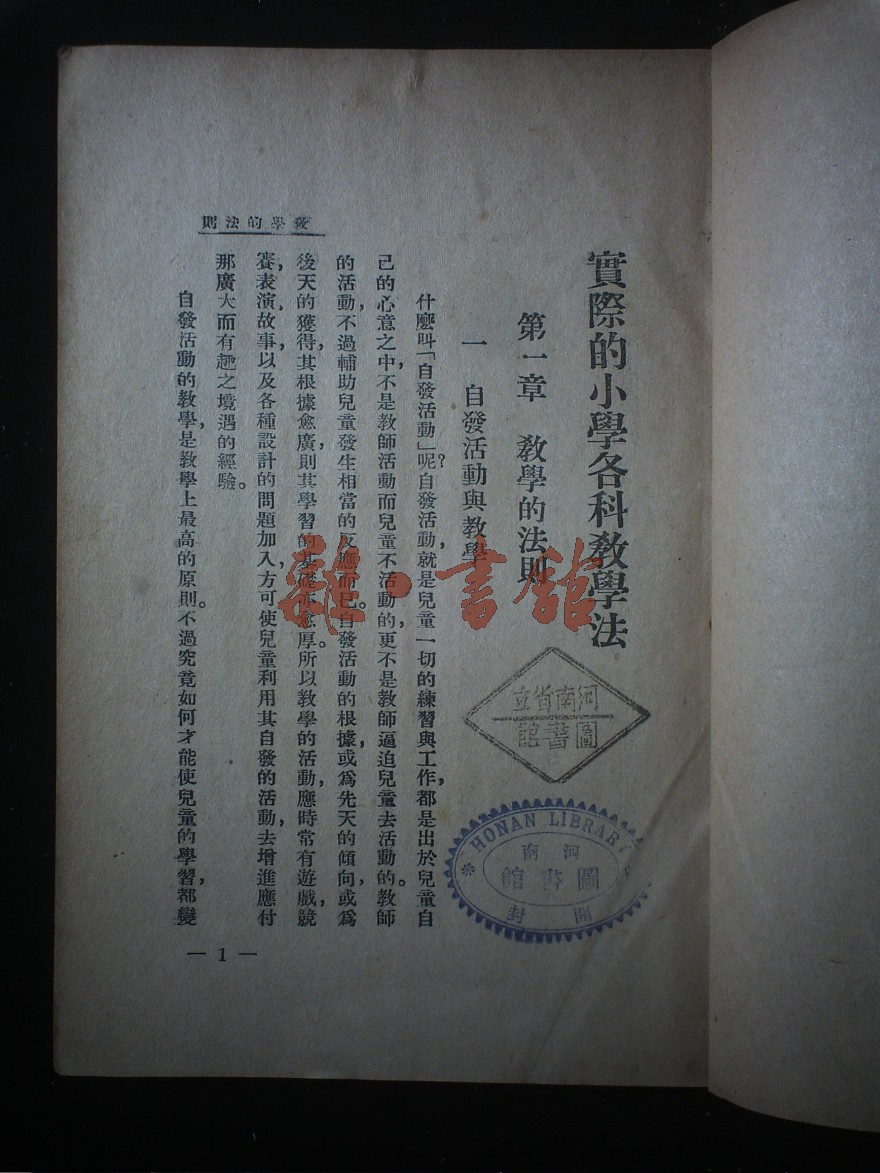 實際的小學各科教學法
第一章　教學的法則
一　自發活動與教學
什麼叫「自發活動」呢？自發活動，就是兒童一切的練習與工作，都是出於兒童自
己的心意之中，不是教師活動而兒童不活動的，更不是教師逼迫兒童去活動的。教師
的活動，不過輔助兒童發生相當的反應而已。自發活動的根據，或爲先天的傾向，或爲
後天的獲得，其根據愈廣，則其學習的基礎亦愈厚。所以教學的活動，應時常有遊戲，競
賽，表演，故事，以及各種設計的問題加入，方可使兒童利用其自發的活動，去增進應付
那廣大而有趣之境遇的經驗。
自發活動的教學，是教學上最高的原則。不過究竟如何才能使兒童的學習，都變
教學的法則
— 1 —
河南省立
圖書館
HONAN LIBRARY
河南
圖書館
開封
雜·書館